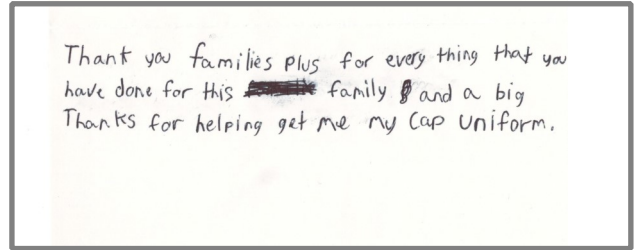 Thank you families plus for every thing that you
have done for this family and a big
Thanks for helping get me my Cap Uniform.